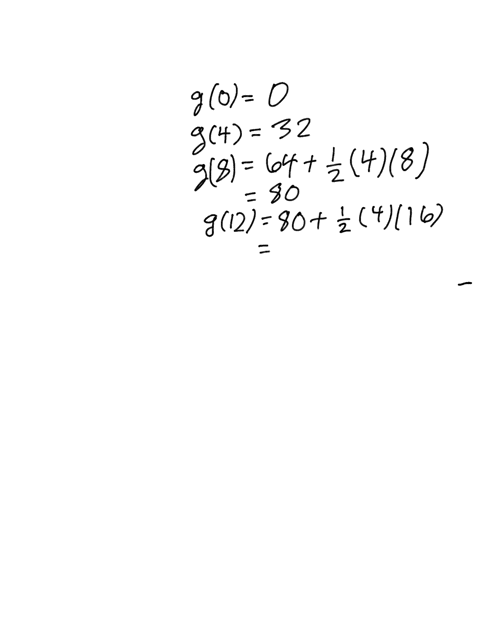 g(0) = 0
g(4) = 32
g(8) = 64 + 1/2 (4)(8)
= 80
g(12) = 80 + 1/2 (4)(16)
=